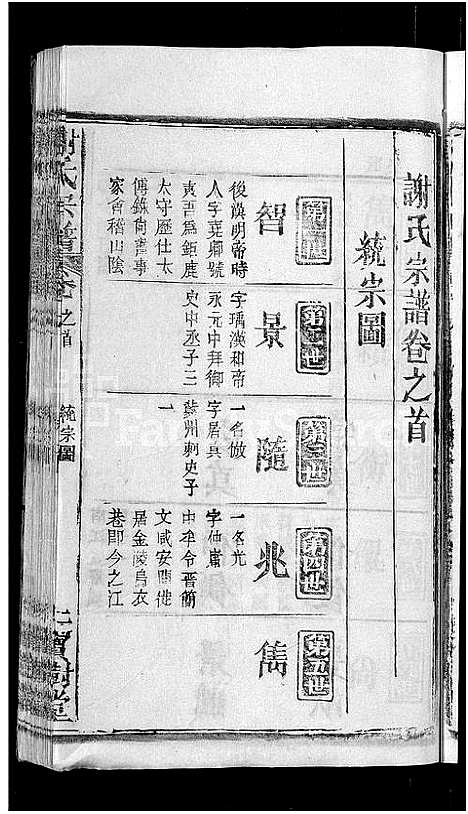 謝氏宗譜卷之首
統宗圖
第一世
智
後漢明帝時
人字堯卿號
夷吾為鉅鹿
太守歷仕太
傅錄尚書事
家會稽山陰
第二世
景
字瑀漢和帝
永元中拜御
史中丞子三
第三世
隨
一名倣
字居真
蘇州刺史子
一
第四世
兆
一名允
字仲庸
中牟令晉簡
文咸安間徙
居金陵烏衣
巷即今之江
第五世
雋
謝氏宗譜卷之首
統宗圖
寶樹堂